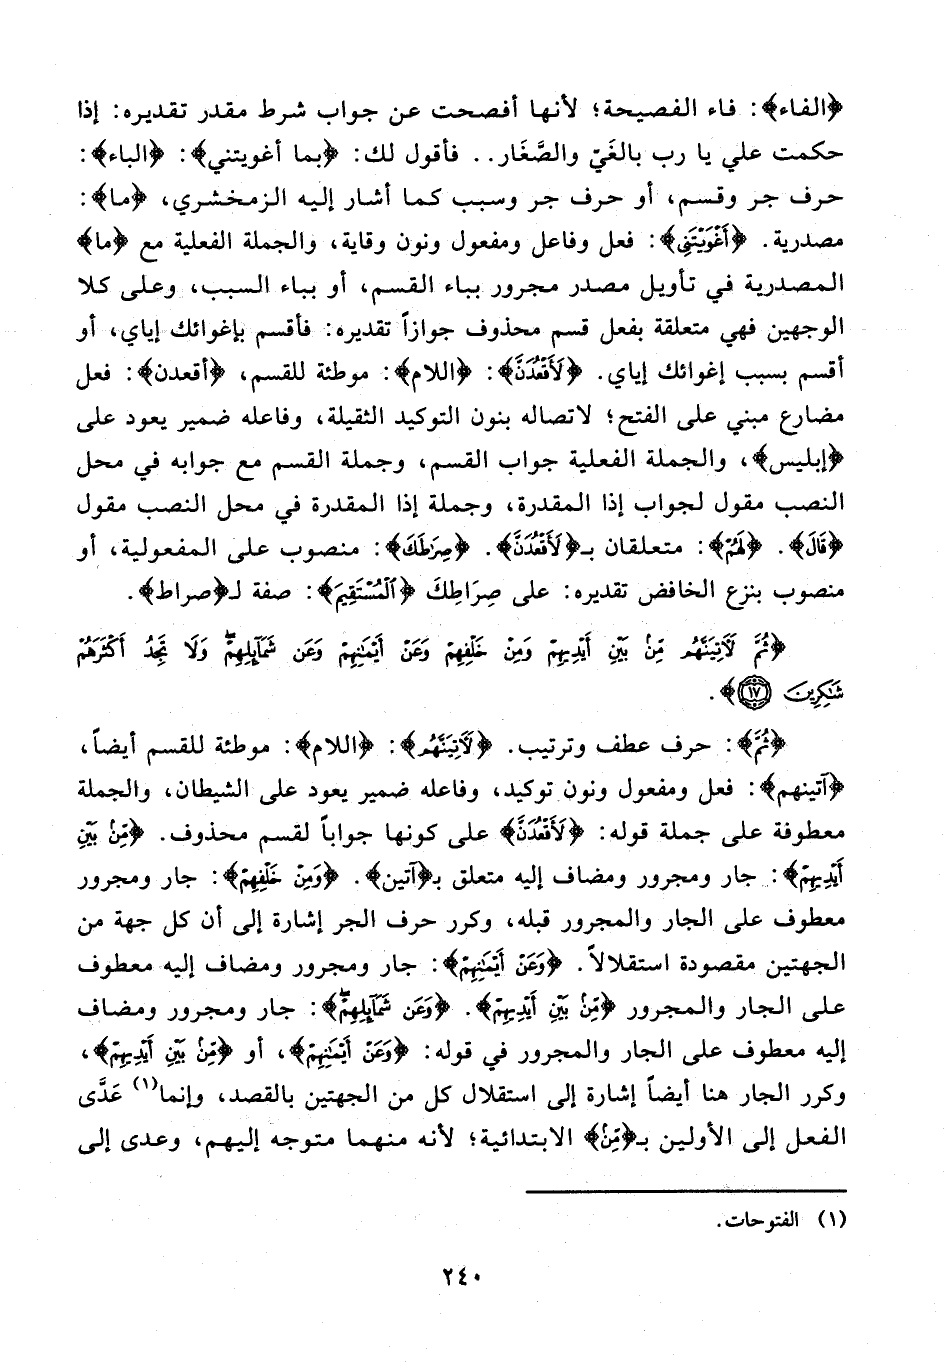 ﴿الفاء﴾: فاء الفصيحة؛ لأنها أفصحت عن جواب شرط مقدر تقديره: إذا
حكمت علي يا رب بالغَيّ والصَّغَار.. فأقول لك: ﴿بما أغويتني﴾: ﴿الباء﴾:
حرف جر وقسم، أو حرف جر وسبب كما أشار إليه الزمخشري، ﴿ما﴾:
مصدرية. ﴿أَغْوَيْتَنِي﴾: فعل وفاعل ومفعول ونون وقاية، والجملة الفعلية مع ﴿ما﴾
المصدرية في تأويل مصدر مجرور بباء القسم، أو بباء السبب، وعلى كلا
الوجهين فهي متعلقة بفعل قسم محذوف جوازاً تقديره: فأقسم بإغوائك إياي، أو
أقسم بسبب إغوائك إياي. ﴿لَأَقْعُدَنَّ﴾: ﴿اللام﴾: موطئة للقسم، ﴿أقعدن﴾: فعل
مضارع مبني على الفتح؛ لاتصاله بنون التوكيد الثقيلة، وفاعله ضمير يعود على
﴿إبليس﴾، والجملة الفعلية جواب القسم، وجملة القسم مع جوابه في محل
النصب مقول لجواب إذا المقدرة، وجملة إذا المقدرة في محل النصب مقول
﴿قَالَ﴾. ﴿لَهُمْ﴾: متعلقان بـ﴿لَأَقْعُدَنَّ﴾. ﴿صِرَٰطَكَ﴾: منصوب على المفعولية، أو
منصوب بنزع الخافض تقديره: على صِرَاطِكَ ﴿ٱلْمُسْتَقِيمَ﴾: صفة لـ﴿صراط﴾.
﴿ثُمَّ لَآتِيَنَّهُم مِّنۢ بَيْنِ أَيْدِيهِمْ وَمِنْ خَلْفِهِمْ وَعَنْ أَيْمَٰنِهِمْ وَعَن شَمَآئِلِهِمْ ۖ وَلَا تَجِدُ أَكْثَرَهُمْ
شَٰكِرِينَ ١٧﴾.
﴿ثُمَّ﴾: حرف عطف وترتيب. ﴿لَآتِيَنَّهُم﴾: ﴿اللام﴾: موطئة للقسم أيضاً،
﴿آتينهم﴾: فعل ومفعول ونون توكيد، وفاعله ضمير يعود على الشيطان، والجملة
معطوفة على جملة قوله: ﴿لَأَقْعُدَنَّ﴾ على كونها جواباً لقسم محذوف. ﴿مِّنۢ بَيْنِ
أَيْدِيهِمْ﴾: جار ومجرور ومضاف إليه متعلق بـ﴿آتين﴾. ﴿وَمِنْ خَلْفِهِمْ﴾: جار ومجرور
معطوف على الجار والمجرور قبله، وكرر حرف الجر إشارة إلى أن كل جهة من
الجهتين مقصودة استقلالاً. ﴿وَعَنْ أَيْمَٰنِهِمْ﴾: جار ومجرور ومضاف إليه معطوف
على الجار والمجرور ﴿مِّنۢ بَيْنِ أَيْدِيهِمْ﴾. ﴿وَعَن شَمَآئِلِهِمْ ۖ﴾: جار ومجرور ومضاف
إليه معطوف على الجار والمجرور في قوله: ﴿وَعَنْ أَيْمَٰنِهِمْ﴾، أو ﴿مِّنۢ بَيْنِ أَيْدِيهِمْ﴾،
وكرر الجار هنا أيضاً إشارة إلى استقلال كل من الجهتين بالقصد، وإنما(١) عَدَّى
الفعل إلى الأولين بـ﴿مِّنۢ﴾ الابتدائية؛ لأنه منهما متوجه إليهم، وعدى إلى
(١) الفتوحات.
٢٤٠